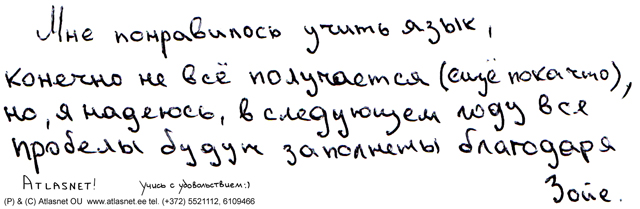 Мне понравилось учить язык,
конечно не всё получается (ещё пока что),
но, я надеюсь, в следующем году все
пробелы будут заполнены благодаря
Зойе.
ATLASNET! Учись с удовольствием:)
(P) & (C) Atlasnet OU www.atlasnet.ee tel. (+372) 5521112, 6109466